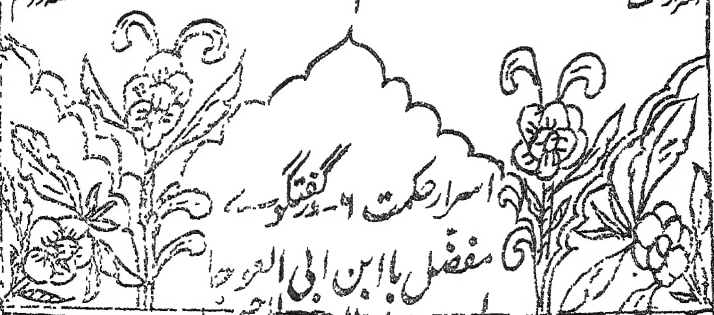 اسرار حکمت ۶ـ در گفتگوے
مفضّل با ابن ابی العوجا